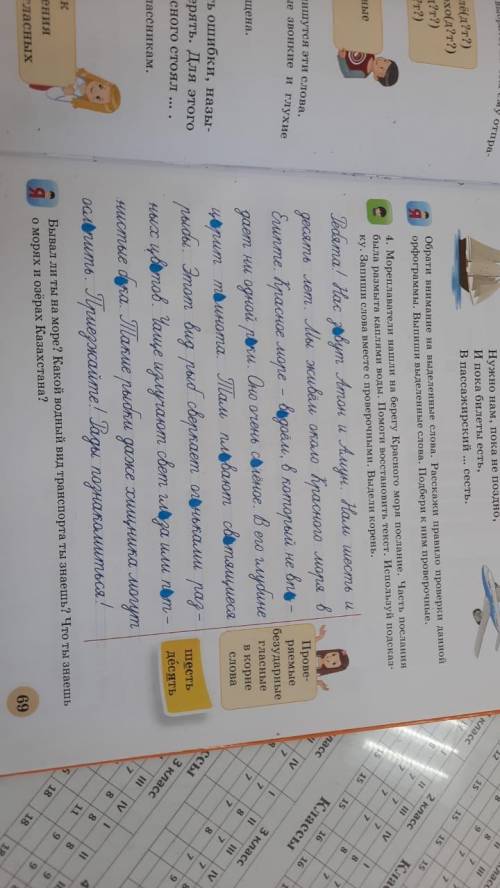 Нужно нам, пока не поздно,
И пока билеты есть,
В пассажирский ... сесть.
Обрати внимание на выделенные слова. Расскажи правило проверки данной
орфограммы. Выпиши выделенные слова. Подбери к ним проверочные.
4. Мореплаватели нашли на берегу Красного моря послание. Часть послания
была размыта каплями воды. Помоги восстановить текст. Используй подсказ-
ку. Запиши слова вместе с проверочными. Выдели корень.
Ребята! Нас з вут Атон и Амун. Нам шесть и
десять лет. Мы живём около Красного моря в
Египте. Красное море – в доём, в который не вп -
дает ни одной р ки. Оно очень с лёное. В его глубине
ц рит т мнота. Там пл вают св тящиеся
рыбы. Этот вид рыб сверкает ог ньками рад-
ных цв тов. Чаще излучают свет гл за или п т-
нистые б ка. Такие рыбки даже хищника могут
осл пить. Приезжайте! Рады познакомиться!
Прове-
ряемые
безударные
гласные
в корне
слова
шесть
де́сять
Бывал ли ты на море? Какой водный вид транспорта ты знаешь? Что ты знаешь
о морях и озёрах Казахстана?
69
лё(д?т?)
хо(д?т?)
?т?)
ные
ишутся эти слова.
е звонкие и глухие
щена.
ть ошибки, назы-
ерять. Для этого
сного стоял ... .
лассникам.
к
ения
гласных
2 класс
3 класс
3 класс
Классы